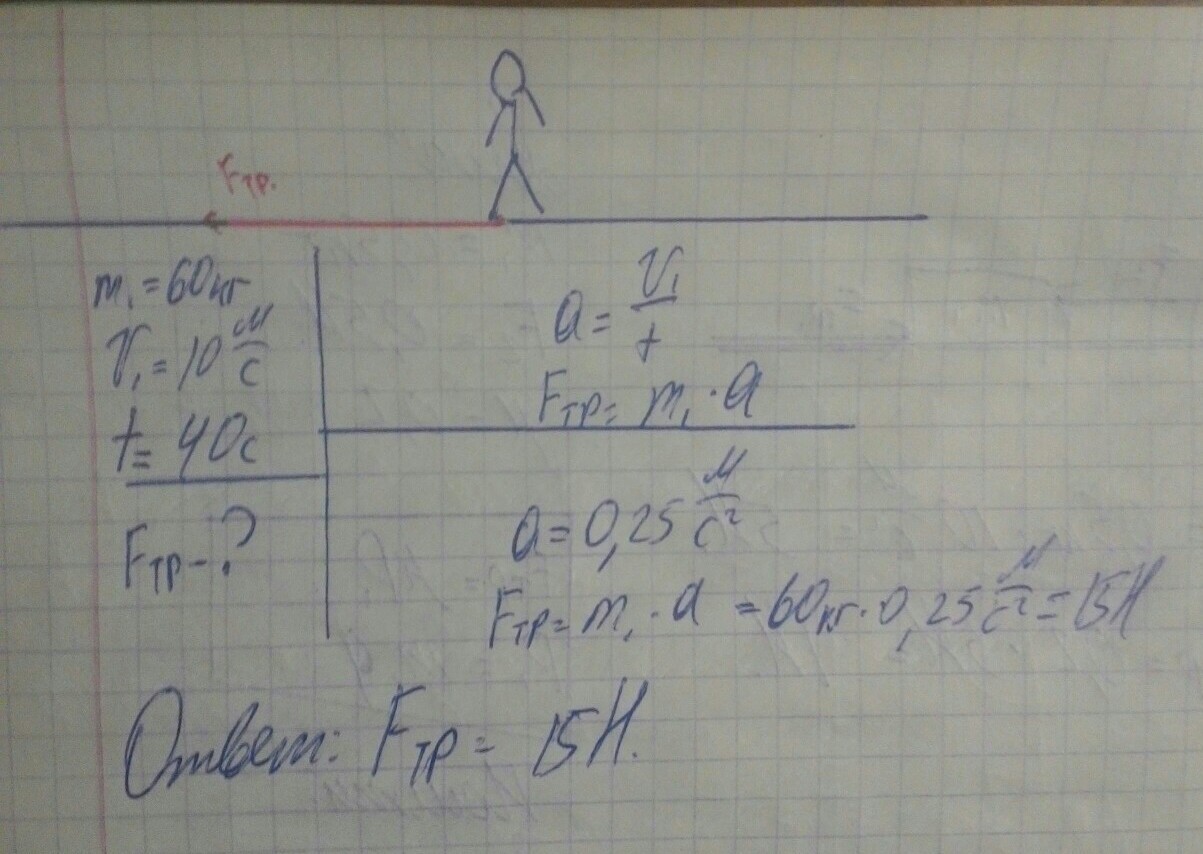 Fтр.
m₁ = 60кг
V₁ = 10 м/с
t = 40с
Fтр - ?
a = V₁/t
Fтр = m₁ · a
a = 0,25 м/с²
Fтр = m₁ · a = 60кг · 0,25 м/с² = 15Н
Ответ: Fтр = 15Н.